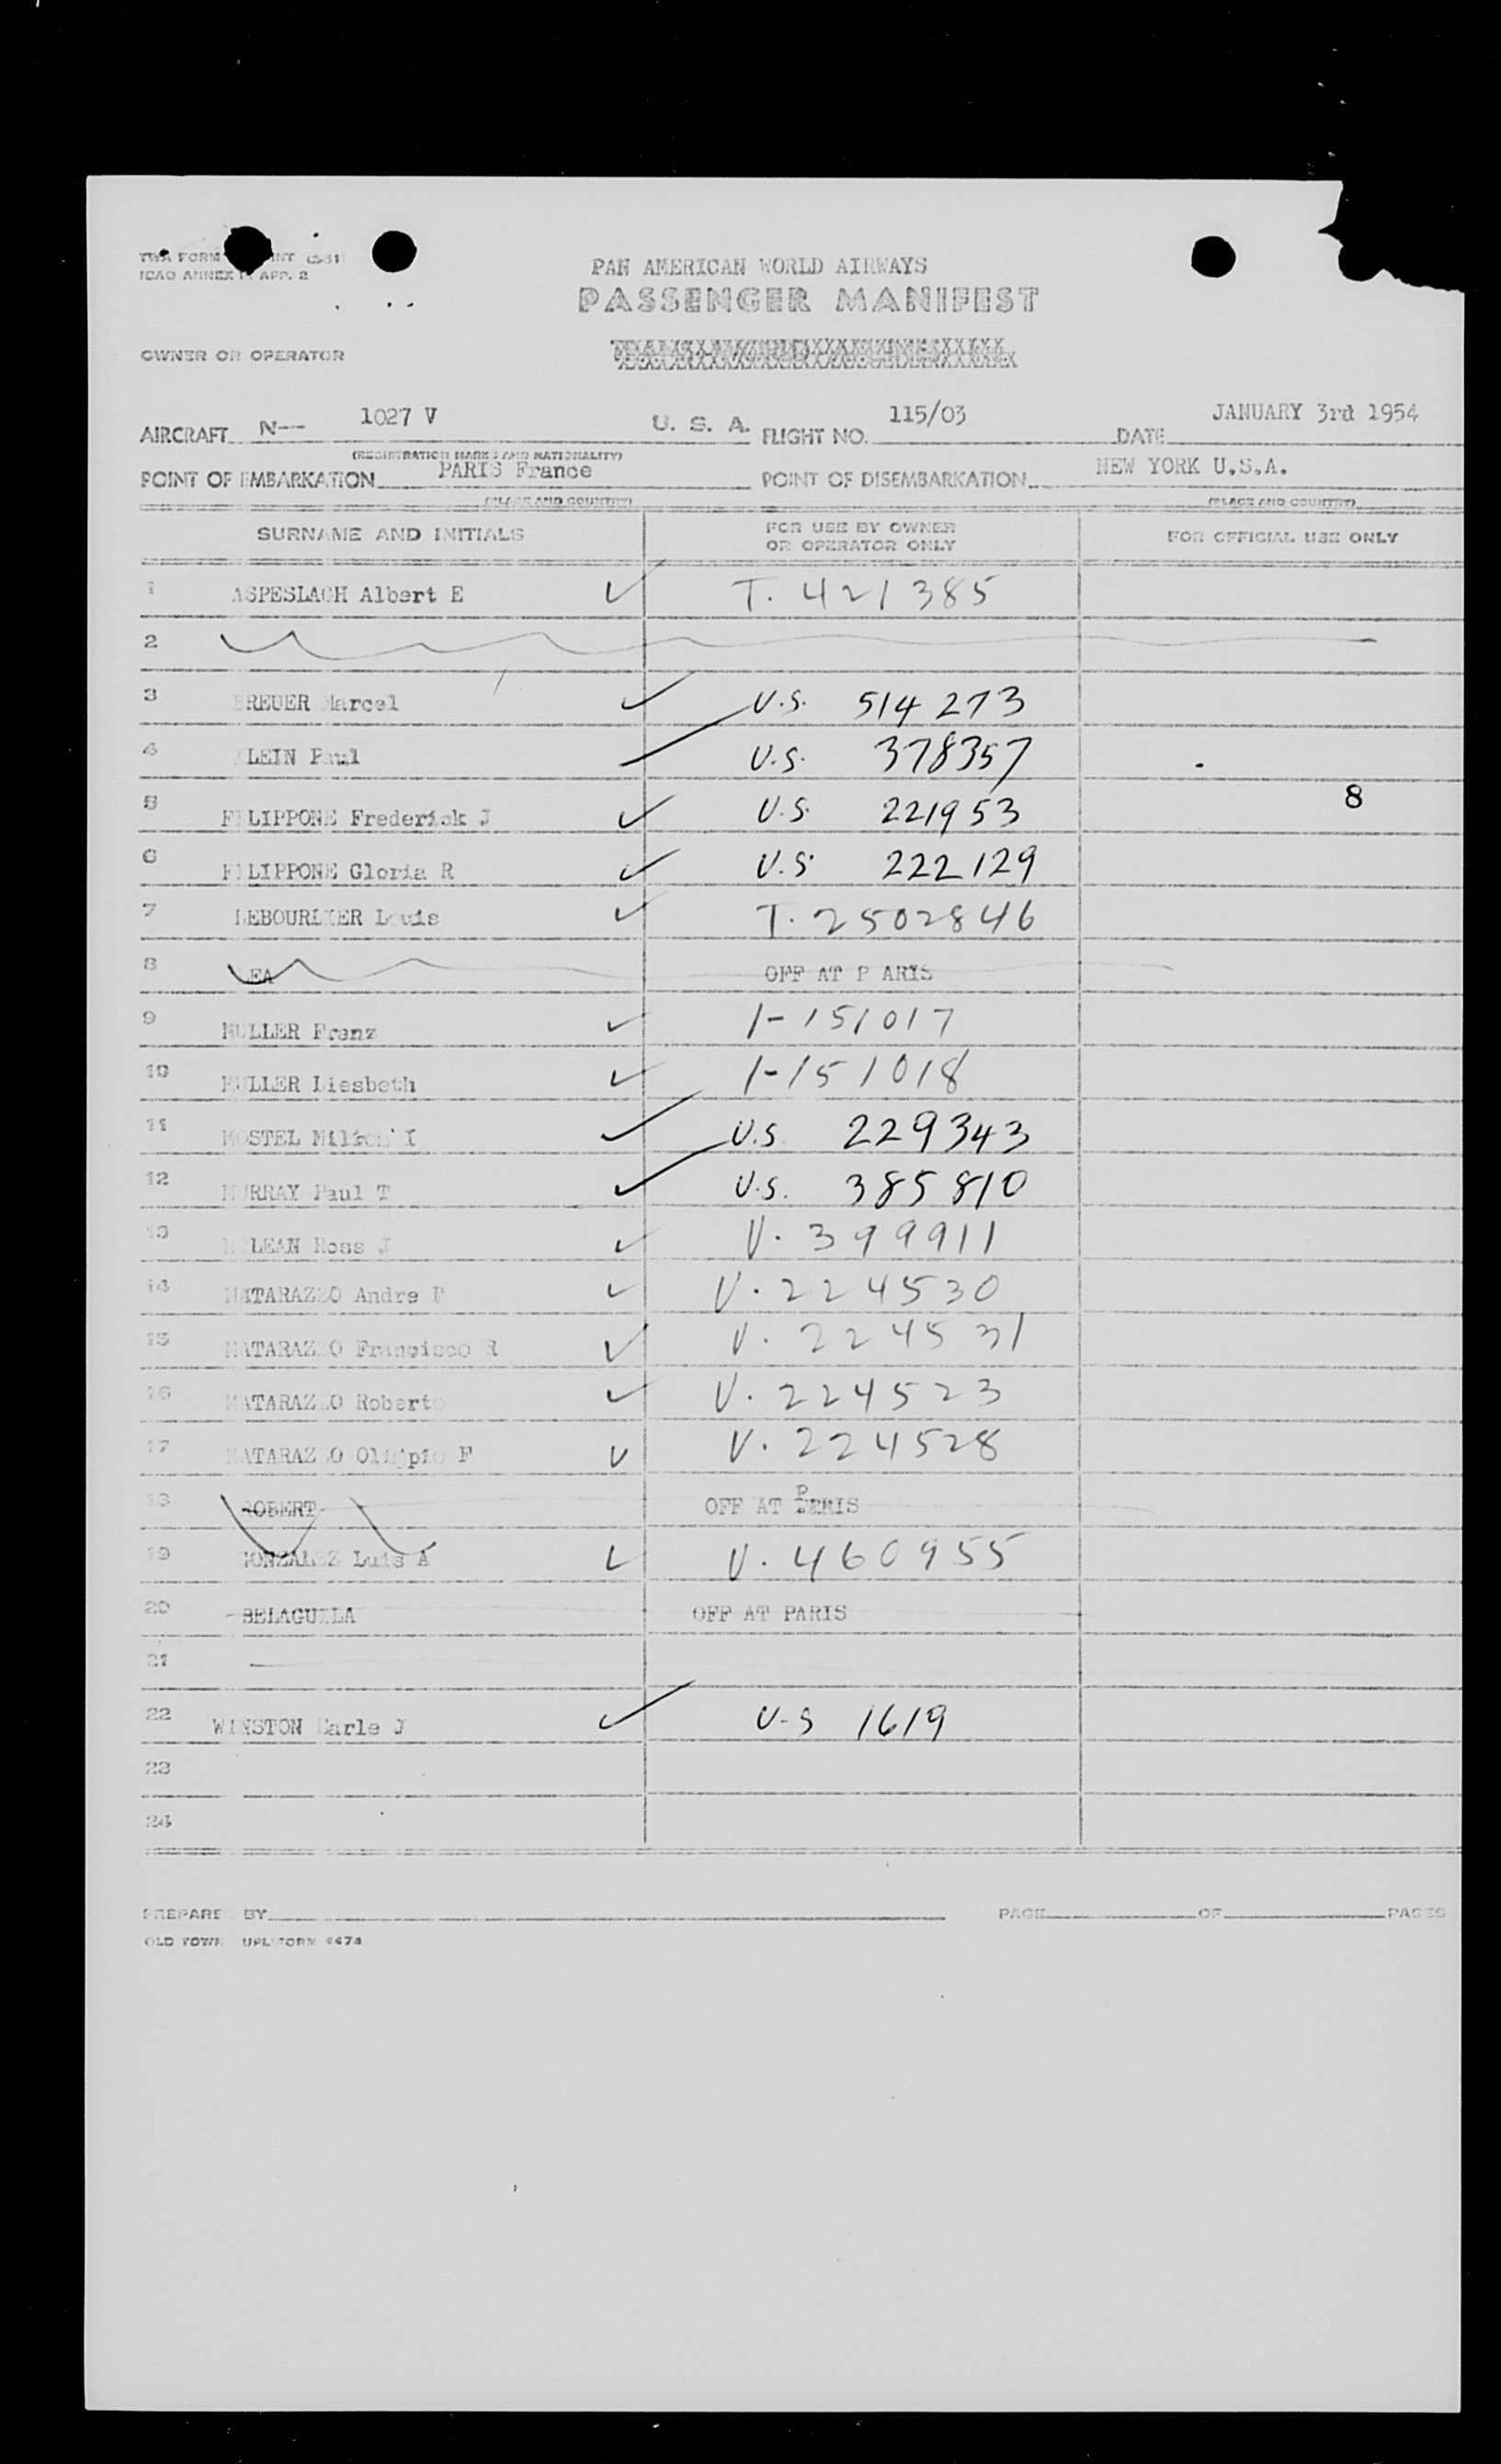 TWA FORM
ICAO ANNEX APP. 2
PAN AMERICAN WORLD AIRWAYS
PASSENGER MANIFEST
OWNER OR OPERATOR
AIRCRAFT N-- 1027 V U. S. A. FLIGHT NO. 115/03 DATE JANUARY 3rd 1954
(REGISTRATION MARKS AND NATIONALITY)
POINT OF EMBARKATION PARIS France POINT OF DISEMBARKATION NEW YORK U.S.A.
(PLACE AND COUNTRY) (PLACE AND COUNTRY)
SURNAME AND INITIALS FOR USE BY OWNER OR OPERATOR ONLY FOR OFFICIAL USE ONLY
1 ASPESLAGH Albert E T. 421385
2
3 BREUER Marcel U.S. 514273
4 KLEIN Paul U.S. 378357
5 FILIPPONE Frederick J U.S. 221953 8
6 FILIPPONE Gloria R U.S. 222129
7 LEBOURLIER Louis T. 2502846
8 LEA OFF AT P ARIS
9 MULLER Franz 1-151017
10 MULLER Liesbeth 1-151018
11 MOSTEL Milton I U.S. 229343
12 MURRAY Paul T U.S. 385810
13 McLEAN Ross J V. 399911
14 MATARAZZO Andre F V. 224530
15 MATARAZZO Francisco R V. 224531
16 MATARAZZO Roberto V. 224523
17 MATARAZZO Olimpio F V. 224528
18 ROBERT OFF AT PARIS
19 GONZALEZ Luis A V. 460955
20 BELAGUILA OFF AT PARIS
21
22 WINSTON Earle J U-S 1619
23
24
PREPARED BY PAGE OF PAGES
OLD TOWN DUPLIFORM 4474